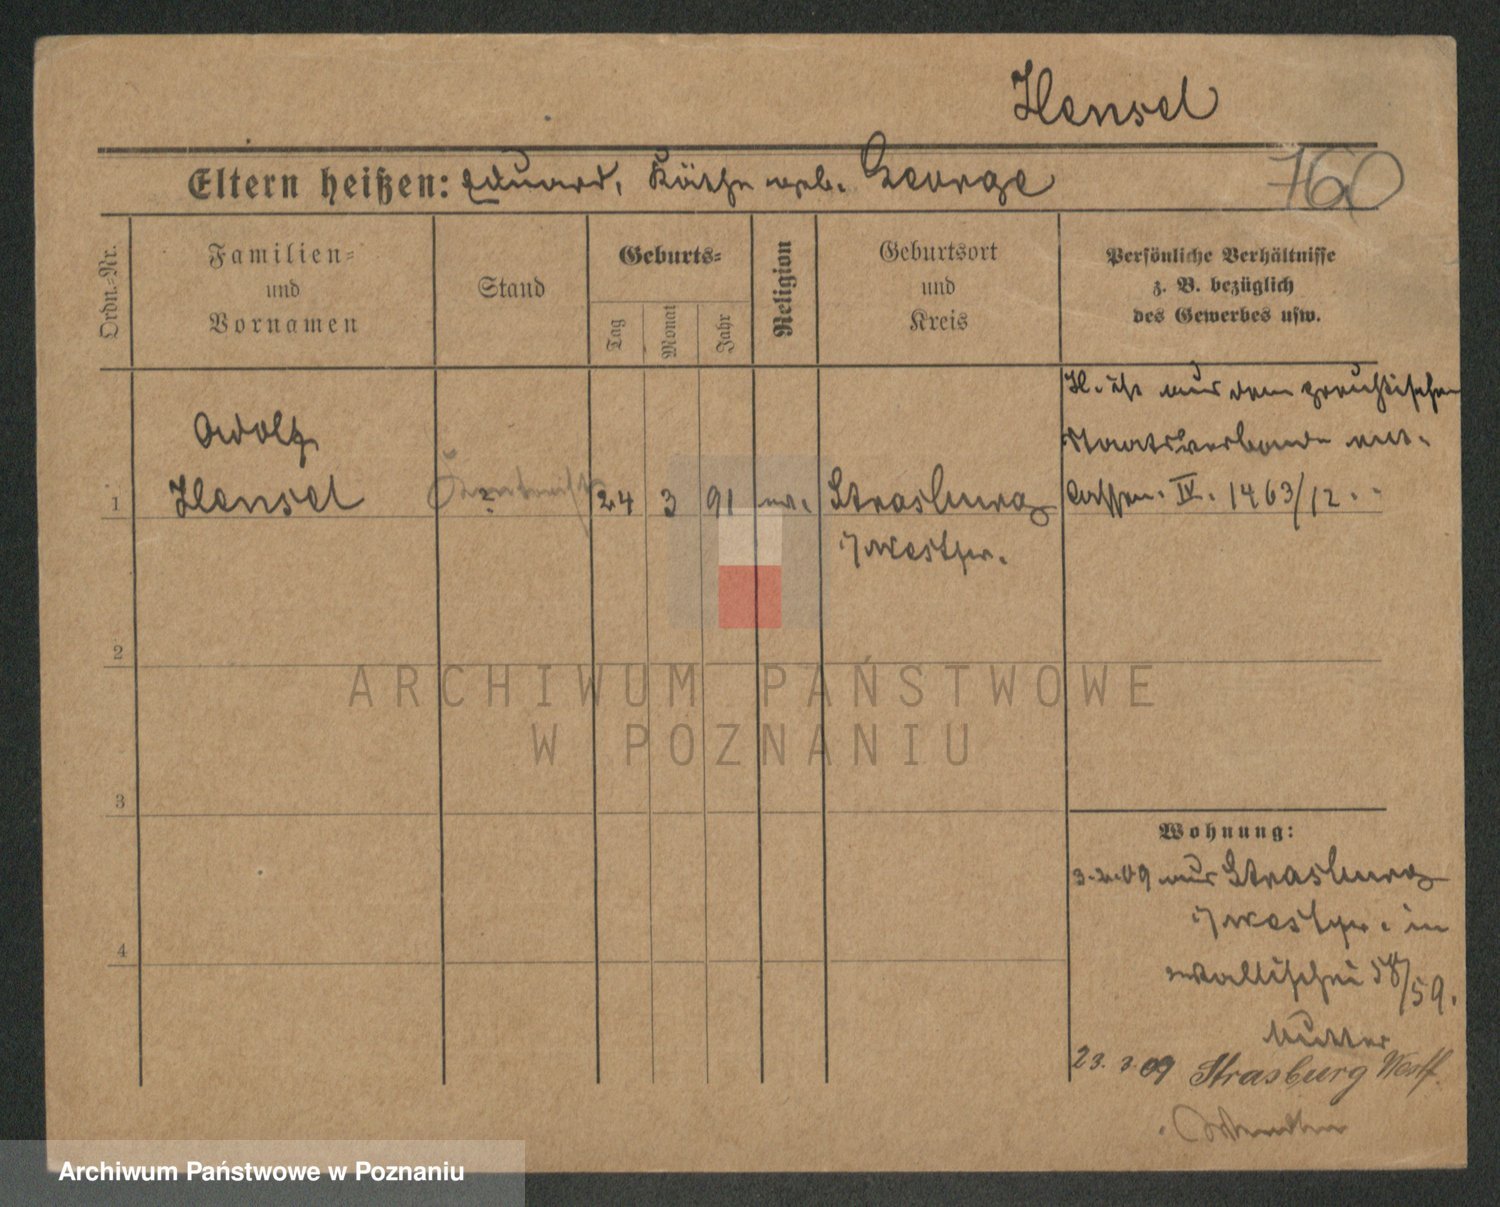 Hensel
Eltern heißen: Eduard, Käthe geb. George
760
Ordn.-Nr.
Familien-
und
Vornamen
Stand
Geburts-
Tag
Monat
Jahr
Religion
Geburtsort
und
Kreis
Persönliche Verhältnisse
z. B. bezüglich
des Gewerbes usw.
H. ist aus dem preußischen
Staatsverbande ent-
lassen. IV. 1463/12.
Adolf
1 Hensel 24 3 91 ev. Strasburg
i/Westpr.
2
3
4
Wohnung:
3.2.09 aus Strasburg
i/Westpr. in
Wallischei 58/59.
Mutter
23. 3. 09 Strasburg Westf.
ARCHIWUM PAŃSTWOWE
W POZNANIU
Archiwum Państwowe w Poznaniu